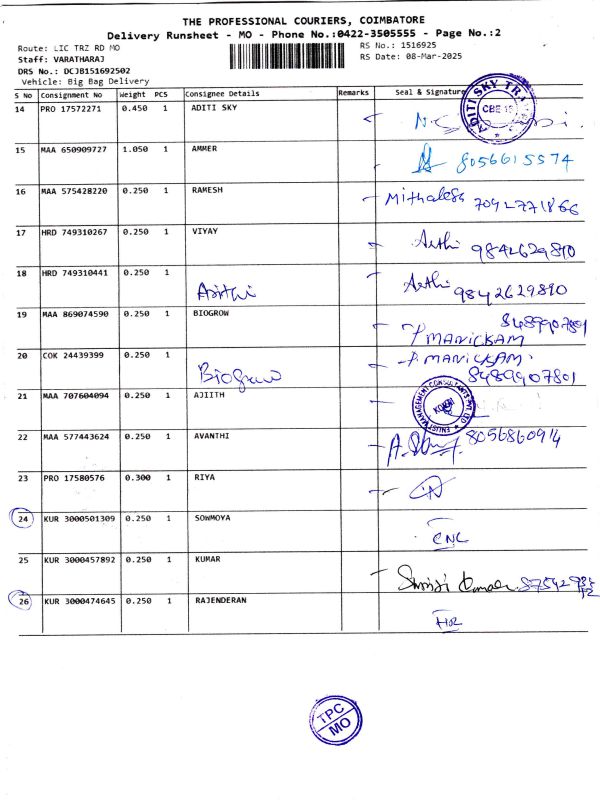 THE PROFESSIONAL COURIERS, COIMBATORE
Delivery Runsheet - MO - Phone No.:0422-3505555 - Page No.:2
Route: LIC TRZ RD MO
RS No.: 1516925
Staff: VARATHARAJ
RS Date: 08-Mar-2025
DRS No.: DCJB151692502
Vehicle: Big Bag Delivery
S No Consignment No Weight PCS Consignee Details Remarks Seal & Signature
14 PRO 17572271 0.450 1 ADITI SKY
ADITI SKY TRA
CBE
15 MAA 650909727 1.050 1 AMMER 8056615574
16 MAA 575428220 0.250 1 RAMESH Mithaless 7092771866
17 HRD 749310267 0.250 1 VIYAY Arthi 9842629890
18 HRD 749310441 0.250 1 Arthi 9842629890
19 MAA 869074590 0.250 1 BIOGROW 8489907801
P. MANICKAM
20 COK 24439399 0.250 1 P. MANICKAM
Biogrow 8489907801
21 MAA 707604094 0.250 1 AJIITH
ENLIST MANAGEMENT CONSULTANTS PVT LTD
22 MAA 577443624 0.250 1 AVANTHI 8056860914
23 PRO 17580576 0.300 1 RIYA
24 KUR 3000501309 0.250 1 SOWMOYA
CNL
25 KUR 3000457892 0.250 1 KUMAR
Kumar
26 KUR 3000474645 0.250 1 RAJENDERAN
TPC
MO